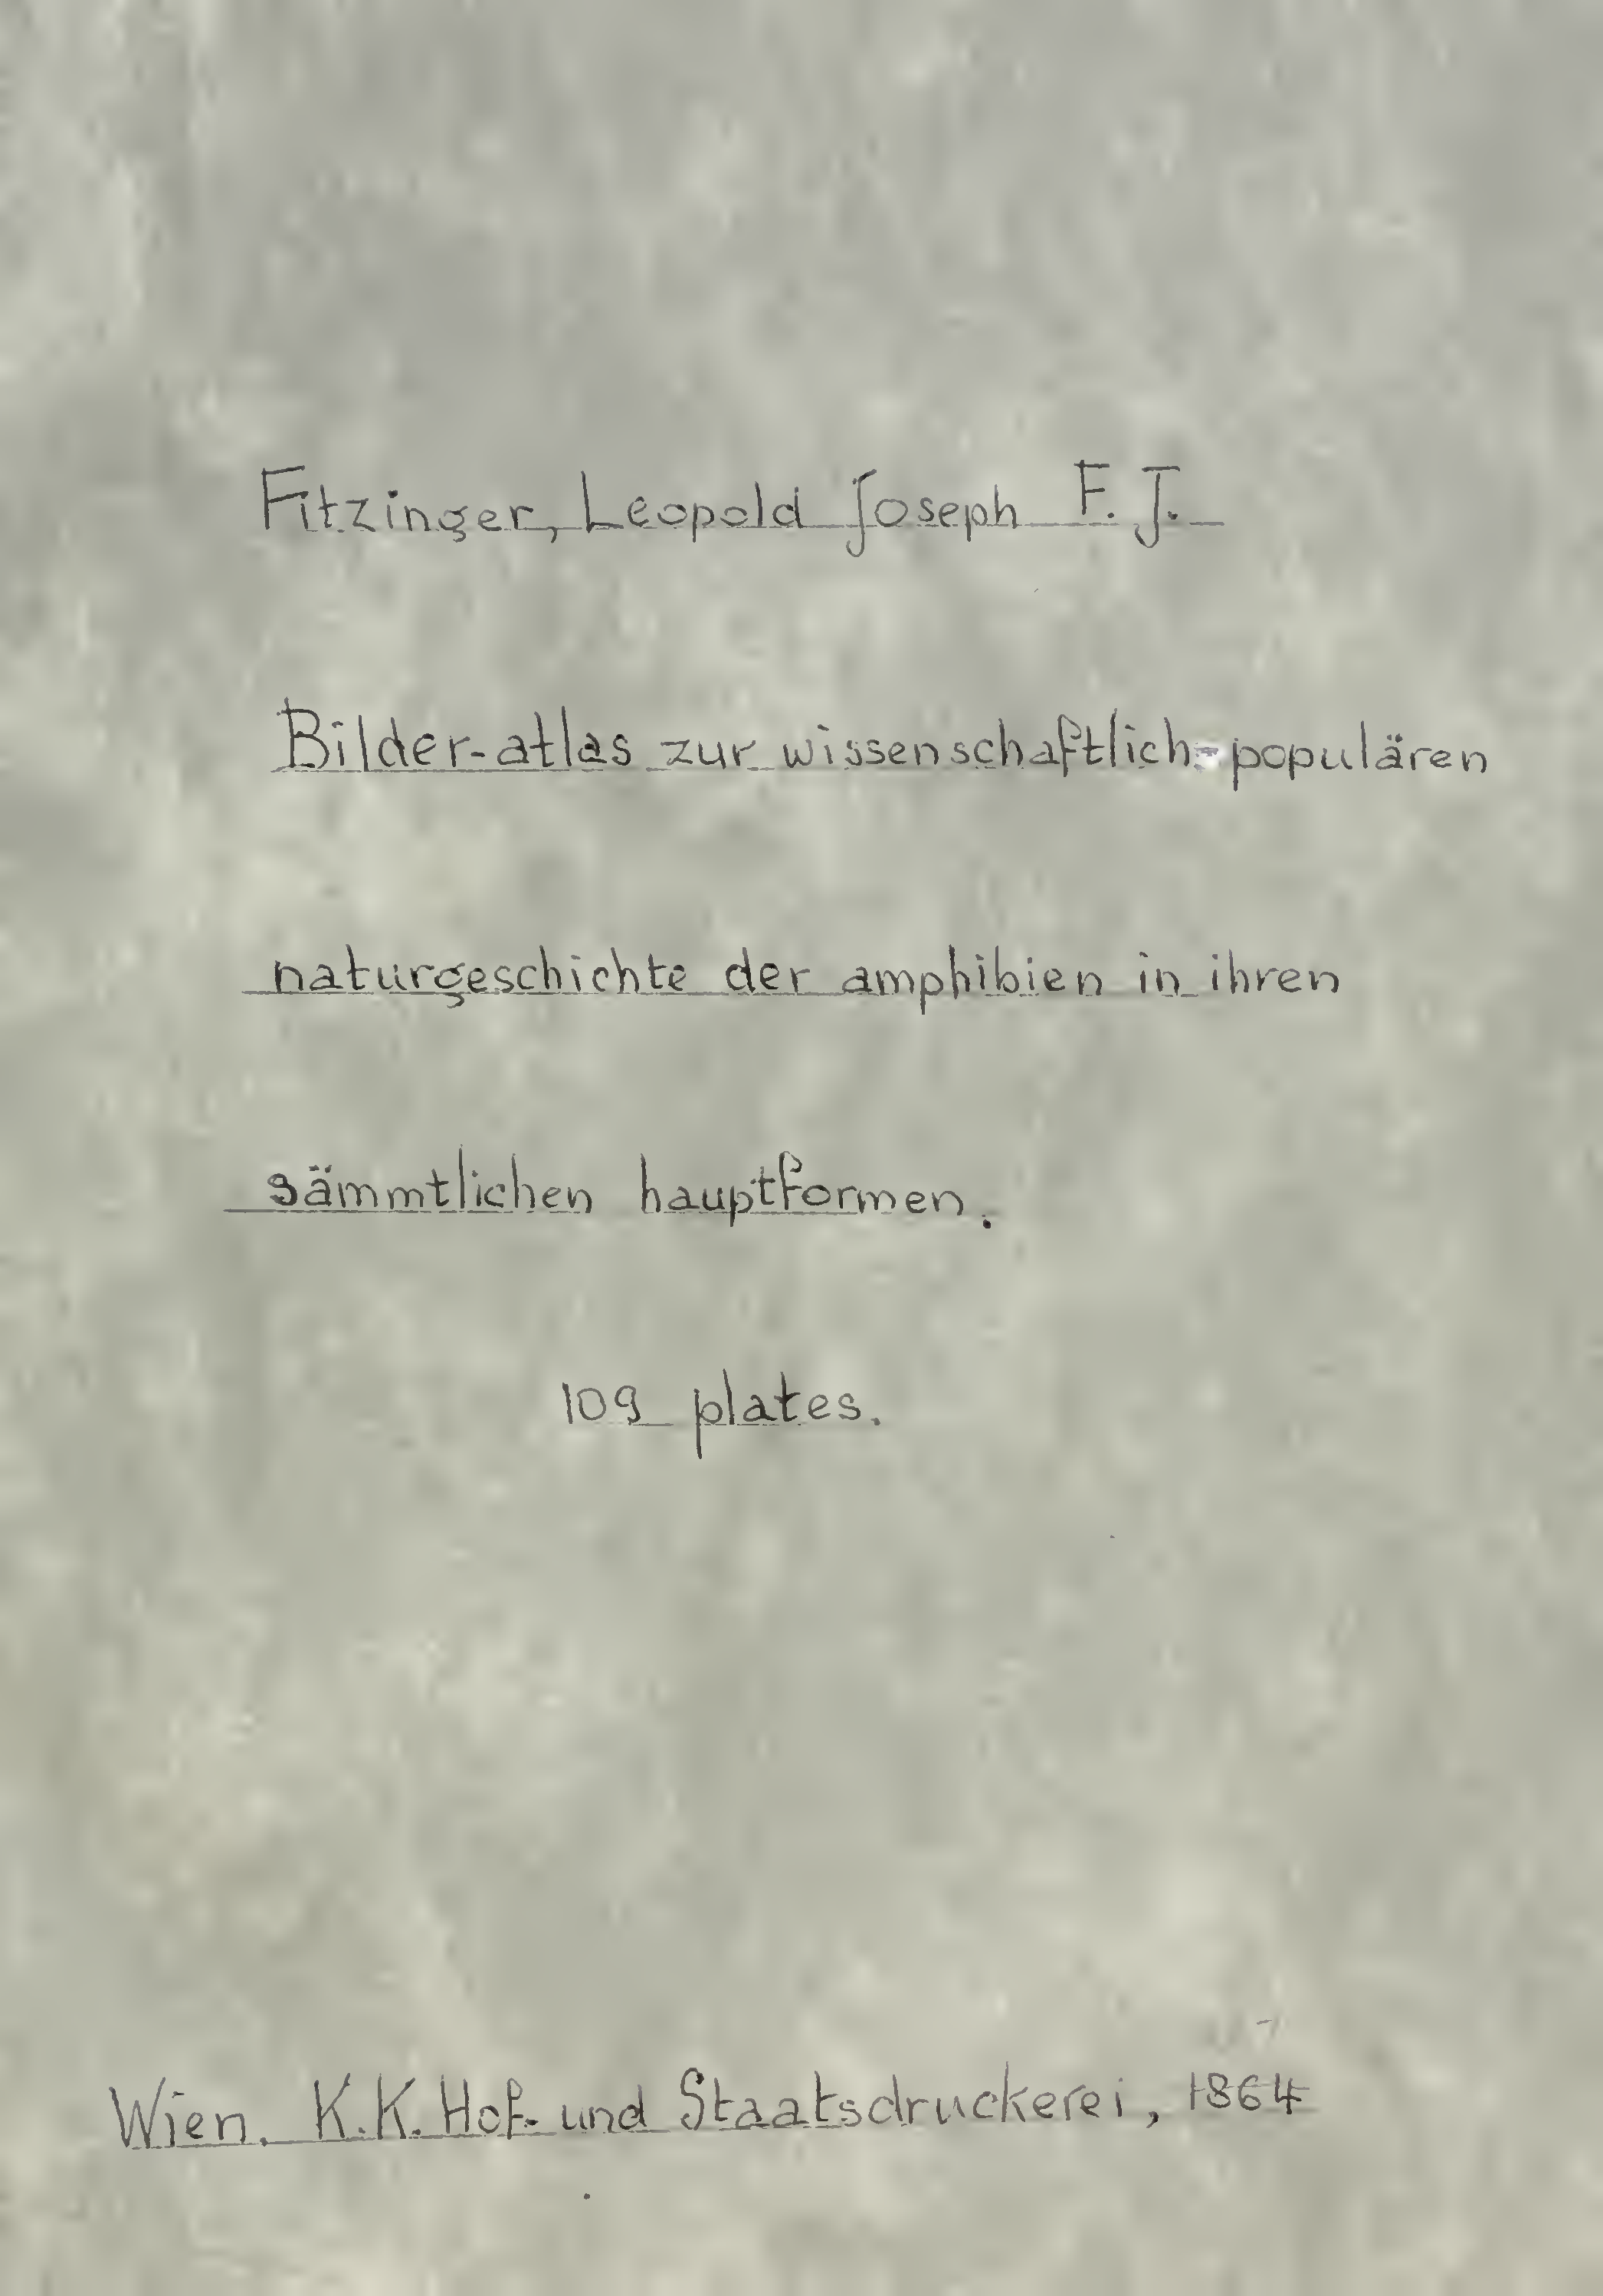 Fitzinger, Leopold Joseph F. J.
Bilder-atlas zur wissenschaftlich-populären
naturgeschichte der amphibien in ihren
sämmtlichen hauptformen.
109 plates.
Wien. K.K. Hof- und Staatsdruckerei, 1864